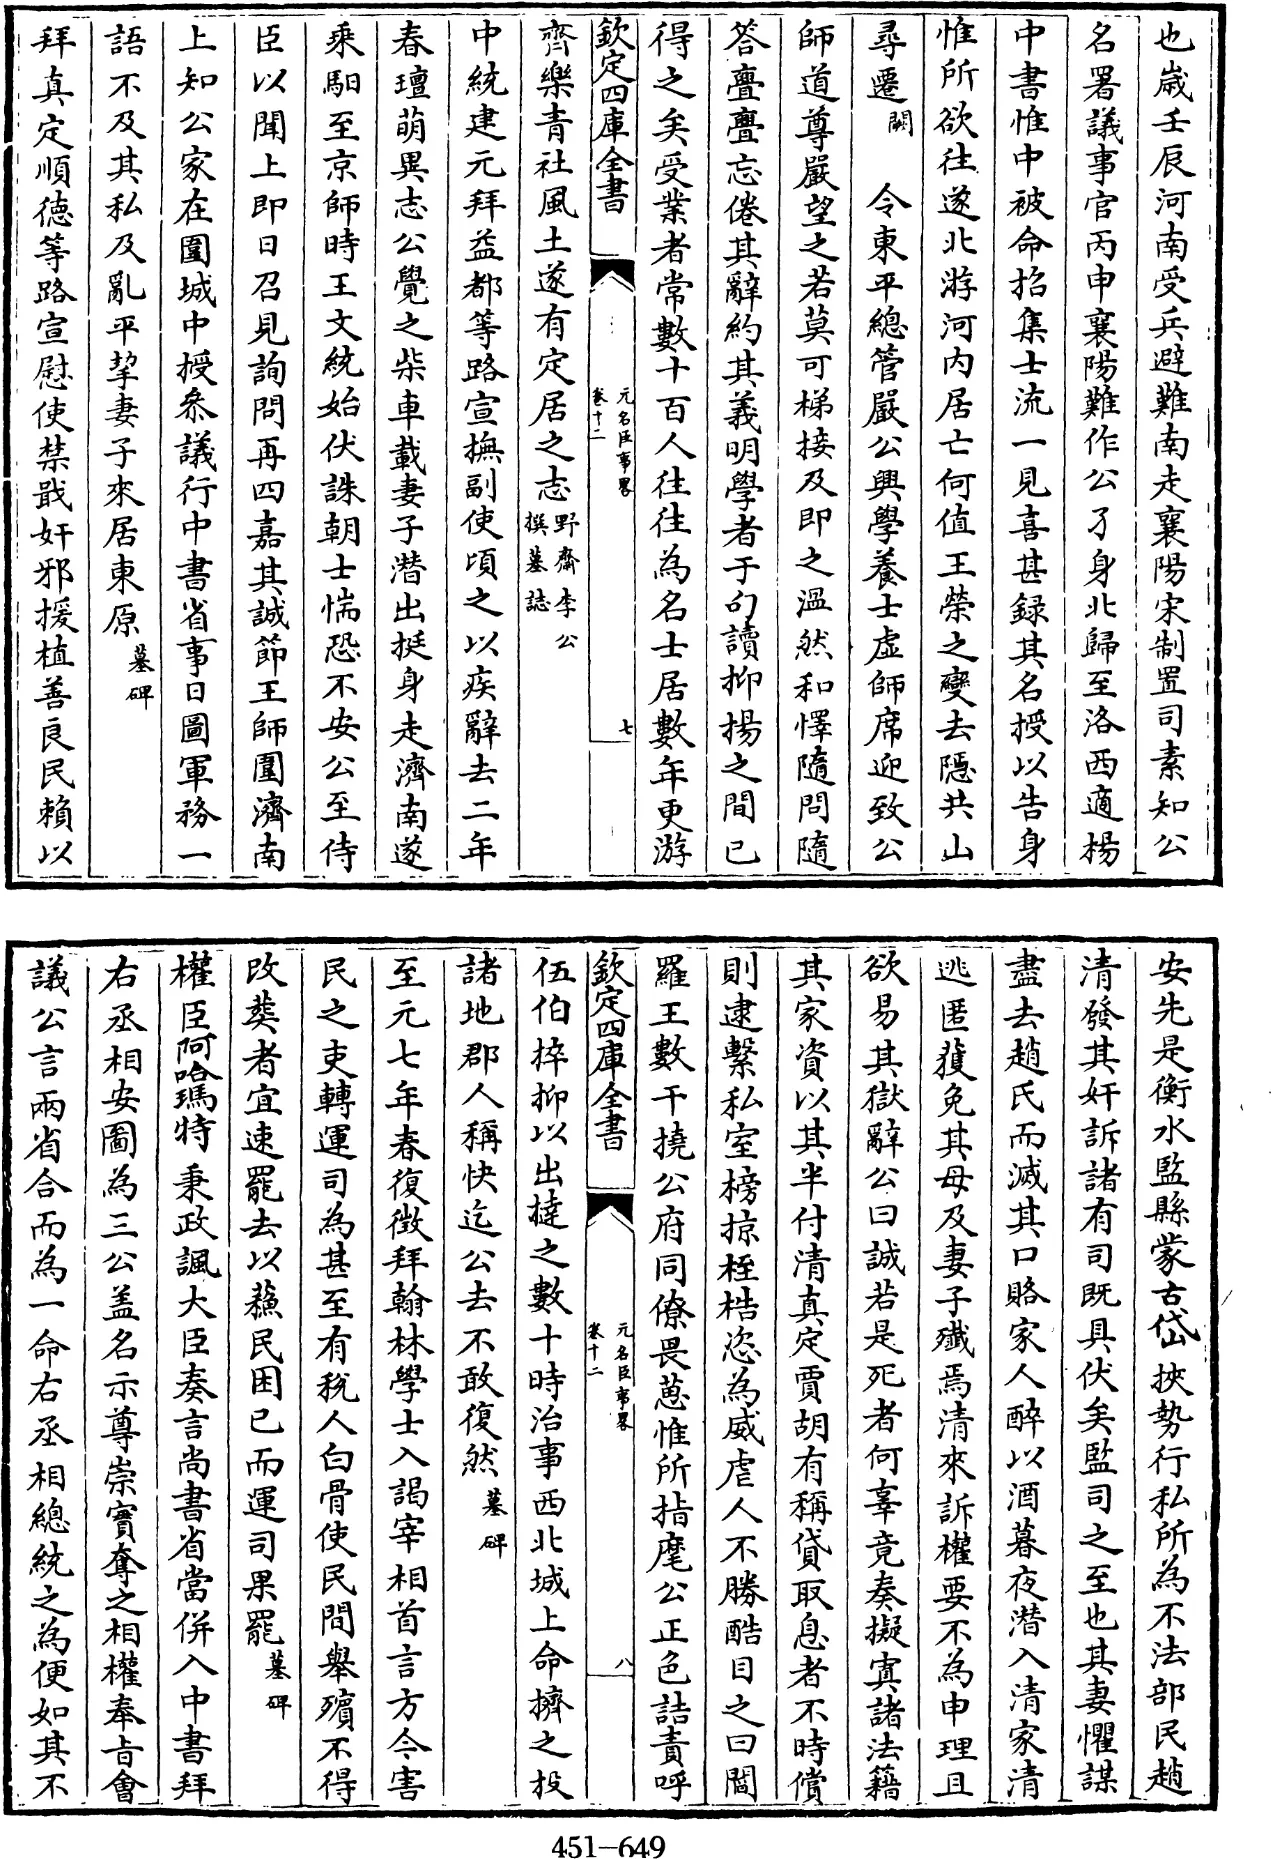 也歳壬辰河南受兵避難南走襄陽宋制置司素知公
名署議事官丙申襄陽難作公孑身北歸至洛西適楊
中書惟中被命招集士流一見喜甚録其名授以告身
惟所欲往遂北游河内居亡何值王榮之變去隱共山
尋遷闕 令東平總管嚴公興學養士虚師席迎致公
師道尊嚴望之若莫可梯接及即之温然和懌隨問隨
答亹亹忘倦其辭約其義明學者于句讀抑揚之間已
得之矣受業者常數十百人往往為名士居數年更游
欽定四庫全書
元名臣事畧
卷十二
七
齊樂青社風土遂有定居之志野齋李公撰墓誌
中統建元拜益都等路宣撫副使頃之以疾辭去二年
春璮萌異志公覺之柴車載妻子潜出挺身走濟南遂
乘馹至京師時王文統始伏誅朝士惴恐不安公至侍
臣以聞上即日召見詢問再四嘉其誠節王師圍濟南
上知公家在圍城中授叅議行中書省事日圖軍務一
語不及其私及亂平挈妻子來居東原墓碑
拜真定順德等路宣慰使禁戢奸邪援植善良民賴以
安先是衡水監縣蒙古岱挾勢行私所為不法部民趙
清發其奸訴諸有司既具伏矣監司之至也其妻懼謀
盡去趙氏而滅其口賂家人醉以酒暮夜潜入清家清
逃匿獲免其母及妻子殲焉清來訴權要不為申理且
欲易其獄辭公曰誠若是死者何辜竟奏擬寘諸法籍
其家資以其半付清真定賈胡有稱貸取息者不時償
則逮繫私室榜掠桎梏恣為威虐人不勝酷目之曰閻
羅王數干撓公府同僚畏葸惟所指麾公正色詰責呼
欽定四庫全書
元名臣事畧
卷十二
八
伍伯捽抑以出撻之數十時治事西北城上命擠之投
諸地郡人稱快迄公去不敢復然墓碑
至元七年春復徴拜翰林學士入謁宰相首言方今害
民之吏轉運司為甚至有税人白骨使民間舉殯不得
改葬者宜速罷去以蘓民困已而運司果罷墓碑
權臣阿哈瑪特秉政諷大臣奏言尚書省當併入中書拜
右丞相安圖為三公盖名示尊崇實奪之相權奉旨會
議公言兩省合而為一命右丞相總統之為便如其不
451-649